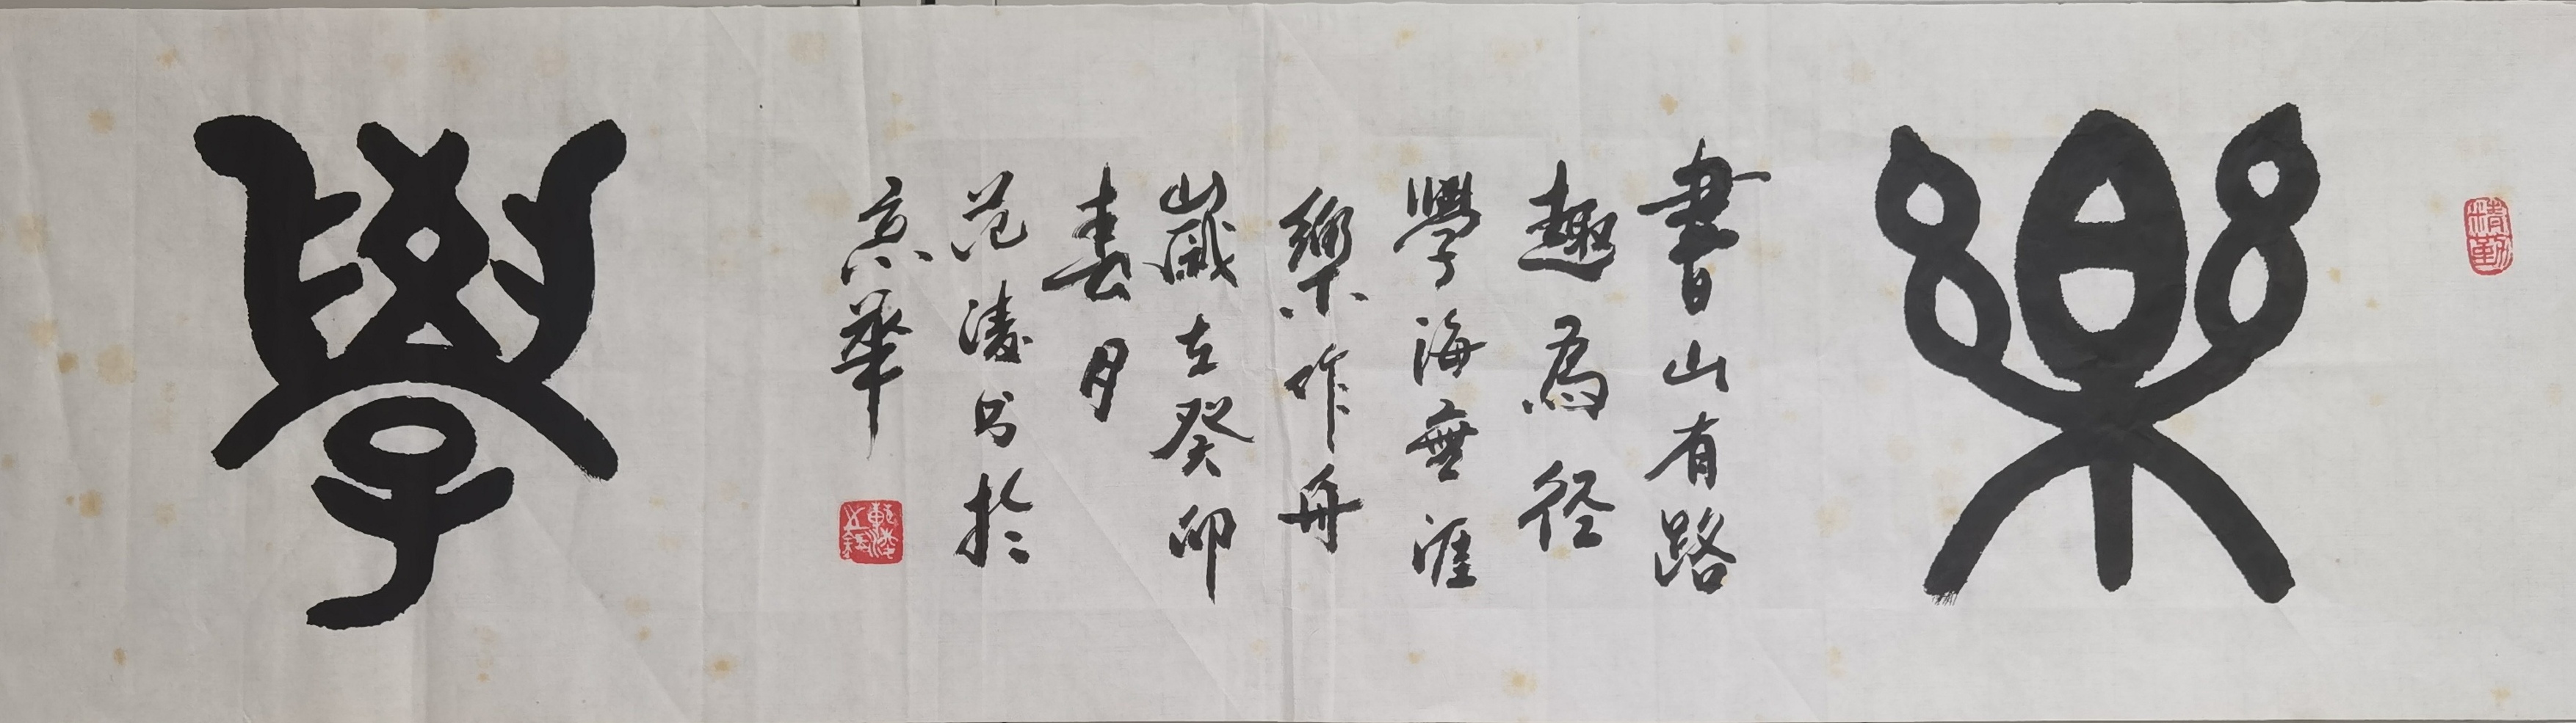 精勤
樂
書山有路
趣為徑
學海無涯
樂作舟
歲在癸卯
春月
范淩書於
京華
學